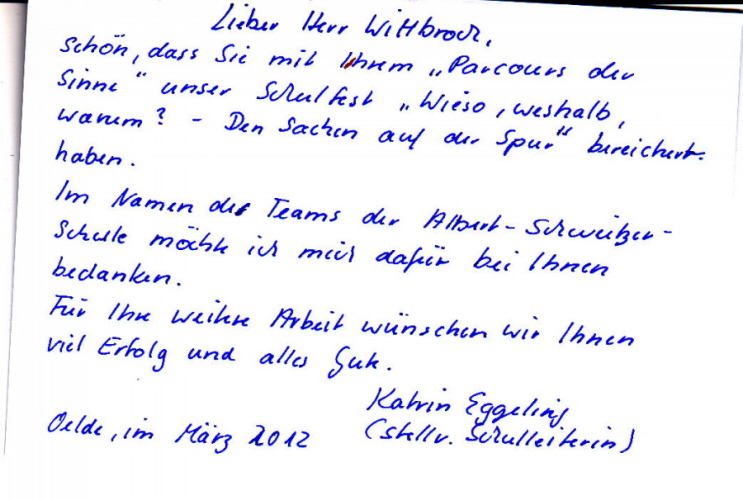 Lieber Herr Wittbrock,
schön, dass Sie mit Ihrem „Parcours der
Sinne" unser Schulfest „Wieso, weshalb,
warum? - Den Sachen auf der Spur" bereichert
haben.
Im Namen des Teams der Albert-Schweitzer-
Schule möchte ich mich dafür bei Ihnen
bedanken.
Für Ihre weitere Arbeit wünschen wir Ihnen
viel Erfolg und alles Gute.
Katrin Eggeling
Oelde, im März 2012 (stellv. Schulleiterin)